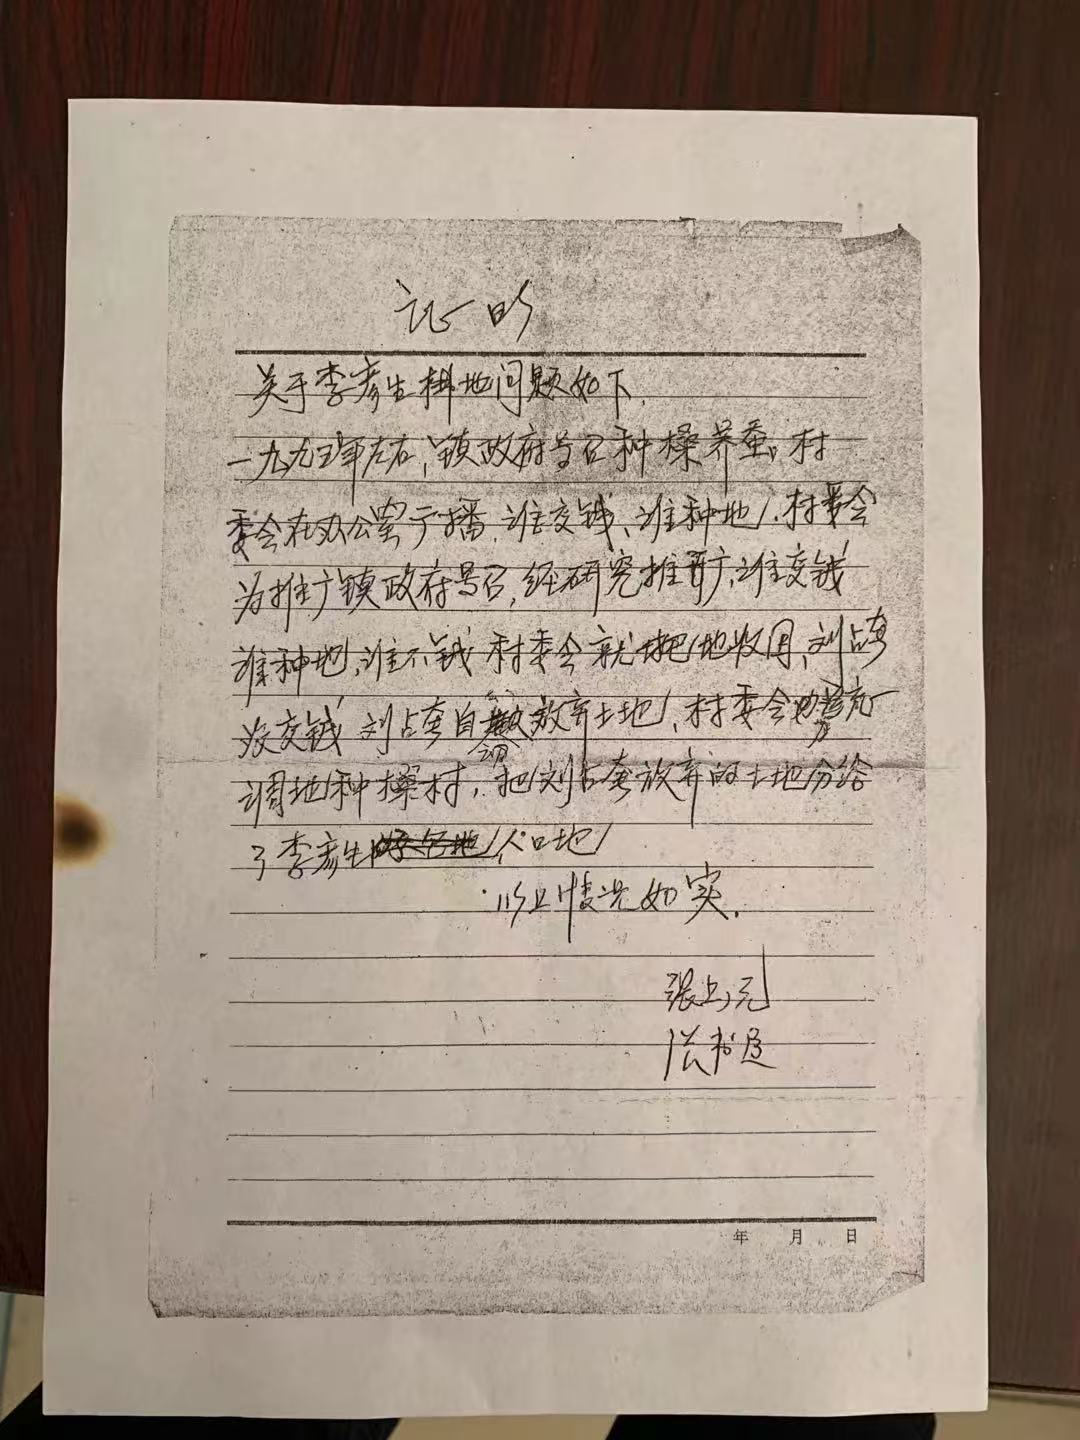 证明
关于李彦生耕地问题如下.
一九九五年左右,镇政府号召种桑养蚕,村
委会在办公室广播.谁交钱、谁种地.村委会
为推广镇政府号召,经研究推广,谁交钱
谁种地,谁不钱村委会就把地收回,刘占奎
没交钱刘占奎自放弃土地,村委会为
调地种桑村,把刘占奎放弃的土地分给
了李彦生人口地
以上情况如实.
年 月 日